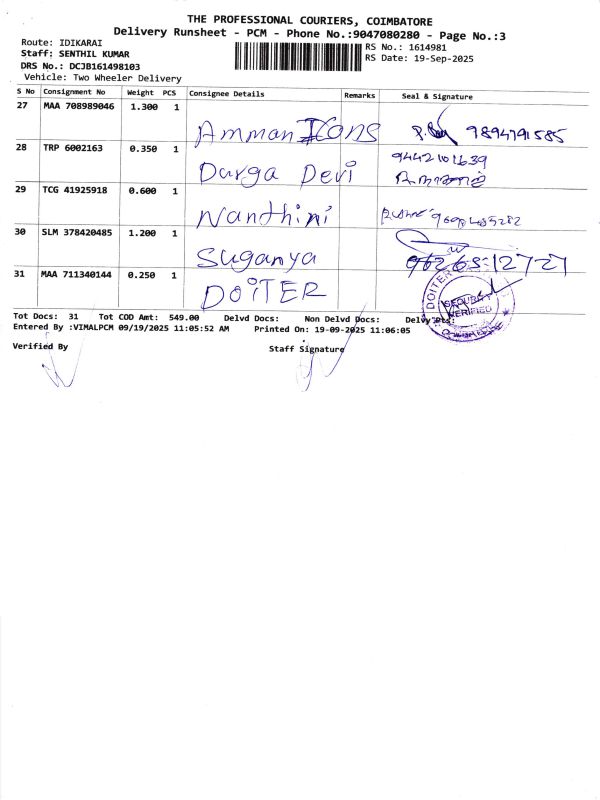 THE PROFESSIONAL COURIERS, COIMBATORE
Delivery Runsheet - PCM - Phone No.:9047080280 - Page No.:3
Route: IDIKARAI
RS No.: 1614981
Staff: SENTHIL KUMAR
RS Date: 19-Sep-2025
DRS No.: DCJB161498103
Vehicle: Two Wheeler Delivery
S No Consignment No Weight PCS Consignee Details Remarks Seal & Signature
27 MAA 708989046 1.300 1 Amman Icons 9894791585
28 TRP 6002163 0.350 1 Durga Devi 9442101639
29 TCG 41925918 0.600 1 Nanthini
30 SLM 378420485 1.200 1 Suganya 96265:12727
31 MAA 711340144 0.250 1 DOiTER
DOITER
SECURITY
VERIFIED
Tot Docs: 31 Tot COD Amt: 549.00 Delvd Docs: Non Delvd Docs: Delvy Pts:
Entered By :VIMALPCM 09/19/2025 11:05:52 AM Printed On: 19-09-2025 11:06:05
Verified By Staff Signature